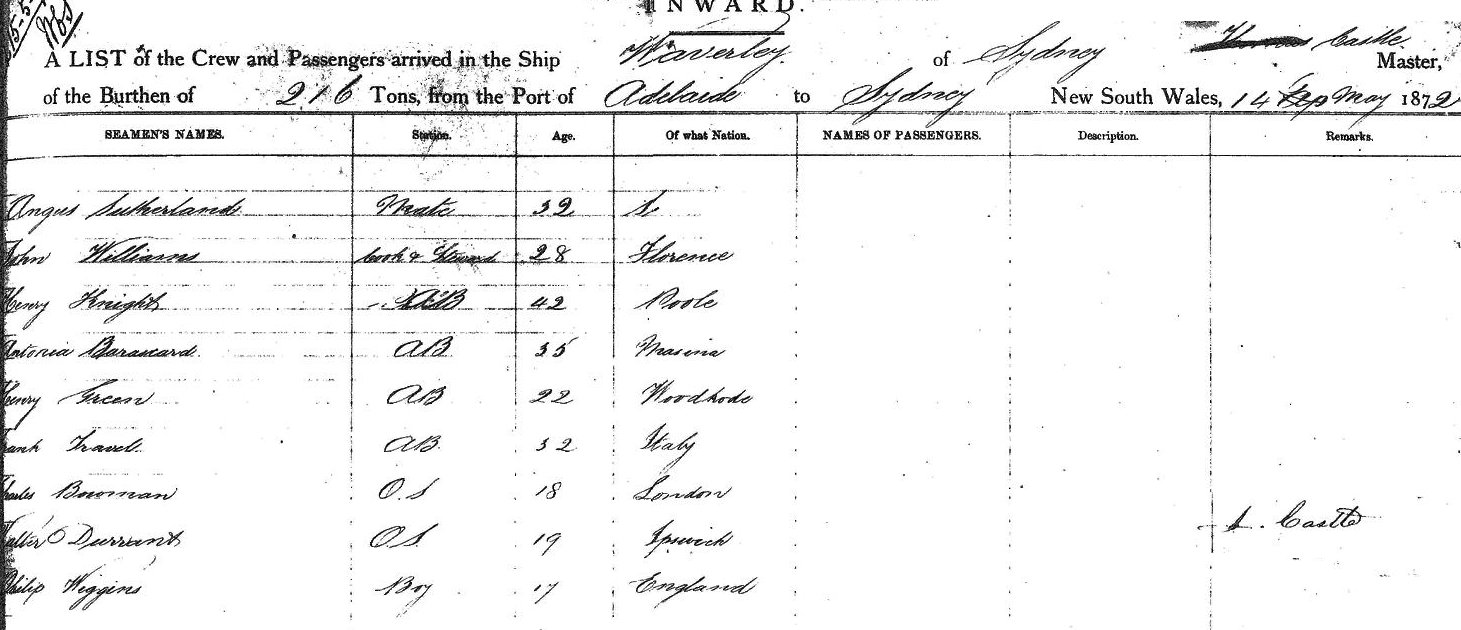 INWARD.
A LIST of the Crew and Passengers arrived in the Ship Waverley of Sydney Castle Master,
of the Burthen of 216 Tons, from the Port of Adelaide to Sydney New South Wales, 14 May 1872
SEAMEN'S NAMES. Station. Age. Of what Nation. NAMES OF PASSENGERS. Description. Remarks.
Angus Sutherland Mate 39 S
John Williams Cook & Steward 28 Florence
Henry Knight AB 42 Poole
Antonia AB 35 Masina
Henry Green AB 22
Frank AB 32 Italy
Charles Bowman O.S 18 London
Walter Durrant OS 19 Ipswich
Castle
Philip Wiggins Boy 17 England